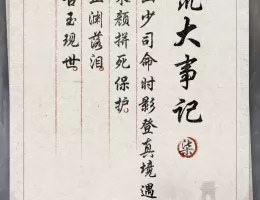 大事记
柒
山少司命时影登真境遇
朱颜拼死保护。
渊落泪
古玉现世。